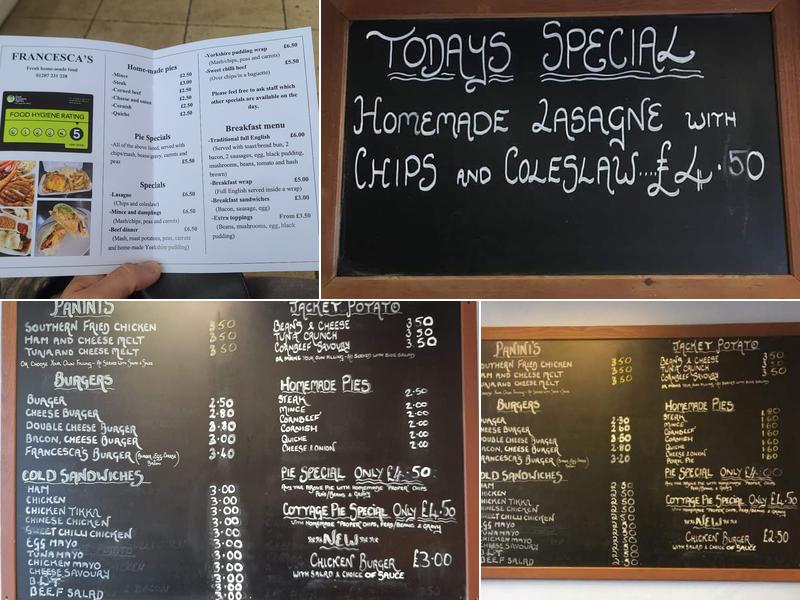 FRANCESCA'S
Fresh home-made food
01207 231 228
FOOD HYGIENE RATING
5
Home-made pies
-Mince £2.50
-Steak £3.00
-Corned beef £2.50
-Cheese and onion £2.50
-Cornish £2.50
-Quiche £2.50
Pie Specials
-All of the above listed, served with
chips/mash, beans/gravy, carrots and
peas £5.50
Specials
-Lasagne £6.50
(Chips and coleslaw)
-Mince and dumplings £6.50
(Mash/chips, peas and carrots)
-Beef dinner £6.50
(Mash, roast potatoes, peas, carrots
and home-made Yorkshire pudding)
-Yorkshire pudding wrap £6.50
(Mash/chips, peas and carrots)
-Sweet chilli beef £5.50
(Over chips/in a baguette)
Please feel free to ask staff which
other specials are available on the
day.
Breakfast menu
-Traditional full English £6.00
(Served with toast/bread bun, 2
bacon, 2 sausages, egg, black pudding,
mushrooms, beans, tomato and hash
brown)
-Breakfast wrap £5.00
(Full English served inside a wrap)
-Breakfast sandwiches £3.00
(Bacon, sausage, egg)
-Extra toppings From £3.50
(Beans, mushrooms, egg, black
pudding)
TODAYS SPECIAL
HOMEMADE LASAGNE WITH
CHIPS AND COLESLAW....£4.50
PANINI'S
SOUTHERN FRIED CHICKEN 3 50
HAM AND CHEESE MELT 3 50
TUNA AND CHEESE MELT 3 50
OR CHOOSE YOUR OWN FILLING
BURGERS
BURGER 2.50
CHEESE BURGER 2.80
DOUBLE CHEESE BURGER 3.80
BACON, CHEESE BURGER 3.00
FRANCESCA'S BURGER (BURGER, EGG, CHEESE BACON) 3.40
COLD SANDWICHES
HAM 3.00
CHICKEN 3.00
CHICKEN TIKKA 3.00
CHINESE CHICKEN 3.00
SWEET CHILLI CHICKEN 3.00
EGG MAYO 3.00
TUNA MAYO 3.00
CHICKEN MAYO 3.00
CHEESE SAVOURY 3.00
B.L.T 3.00
BEEF SALAD 3.00
JACKET POTATO
BEANS & CHEESE 3 50
TUNA CRUNCH 3 50
CORNBEEF SAVOURY 3 50
HOMEMADE PIES
STEAK 2.50
MINCE 2.00
CORNBEEF 2.00
CORNISH 2.00
QUICHE 2.00
CHEESE & ONION 2.00
PIE SPECIAL ONLY £4.50
ANY THE ABOVE PIE WITH HOMEMADE "PROPER" CHIPS
PEAS/BEANS & GRAVY
COTTAGE PIE SPECIAL ONLY £4.50
WITH HOMEMADE "PROPER" CHIPS, PEAS/BEANS & GRAVY
NEW
CHICKEN BURGER £3.00
WITH SALAD & CHOICE OF SAUCE
PANINI'S
SOUTHERN FRIED CHICKEN 3 50
HAM AND CHEESE MELT 3 50
TUNA AND CHEESE MELT 3 50
BURGERS
BURGER
CHEESE BURGER 2.60
DOUBLE CHEESE BURGER
BACON, CHEESE BURGER 2.80
FRANCESCA'S BURGER 3.20
COLD SANDWICHES
HAM
CHICKEN
CHICKEN TIKKA
CHINESE CHICKEN
SWEET CHILLI CHICKEN
EGG MAYO
TUNA MAYO
CHICKEN MAYO
CHEESE SAVOURY
B.L.T
BEEF SALAD
JACKET POTATO
BEANS & CHEESE 3 50
TUNA CRUNCH 3 50
CORNBEEF SAVOURY 3 50
HOMEMADE PIES
STEAK
MINCE
CORNBEEF
CORNISH
QUICHE
CHEESE & ONION
PORK PIE
PIE SPECIAL ONLY
ANY THE ABOVE PIE WITH HOMEMADE "PROPER" CHIPS
PEAS/BEANS & GRAVY
COTTAGE PIE SPECIAL ONLY £4.50
WITH HOMEMADE "PROPER" CHIPS, PEAS/BEANS & GRAVY
NEW
CHICKEN BURGER £2.50
WITH SALAD & CHOICE OF SAUCE